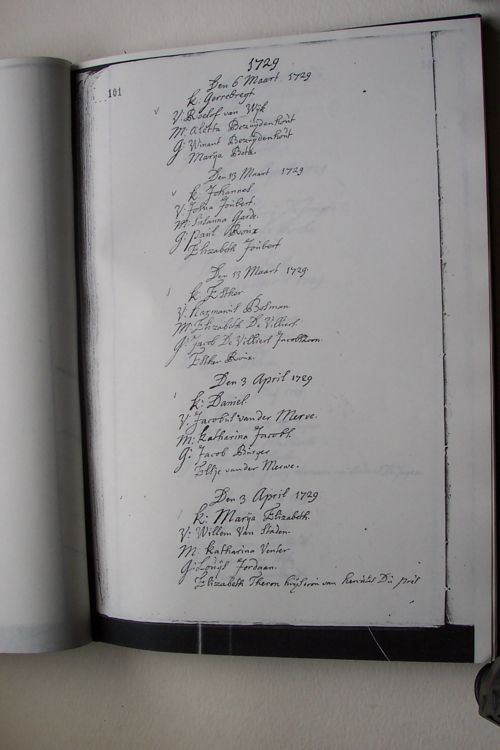 1729
101
Den 6 Maart 1729
k: Gerrebregt
V: Roelof van Wijk
M: Aletta Bezuijdenhout
G: Winant Bezuijdenhout
Marija Botha
Den 13 Maart 1729
k: Johannes
V: Josua Joubert.
M: Susanna Garde.
G: Paul Roux
Elizabeth Joubert
Den 13 Maart 1729
k: Esther
V: Hermanus Bosman
M: Elizabeth De Villiers
G: Jacob De Villiers Jacobszoon
Esther Roux.
Den 3 April 1729
k: Daniel
V: Jacobus van der Merve.
M: Katharina Jacobs.
G: Jacob Burger
Eltje van der Merwe.
Den 3 April 1729
k: Marija Elizabeth.
V: Willem Van Staden.
M: Katharina Venter
G: Louijs Jordaan.
Elizabeth Theron huijsvrou van Du Pre